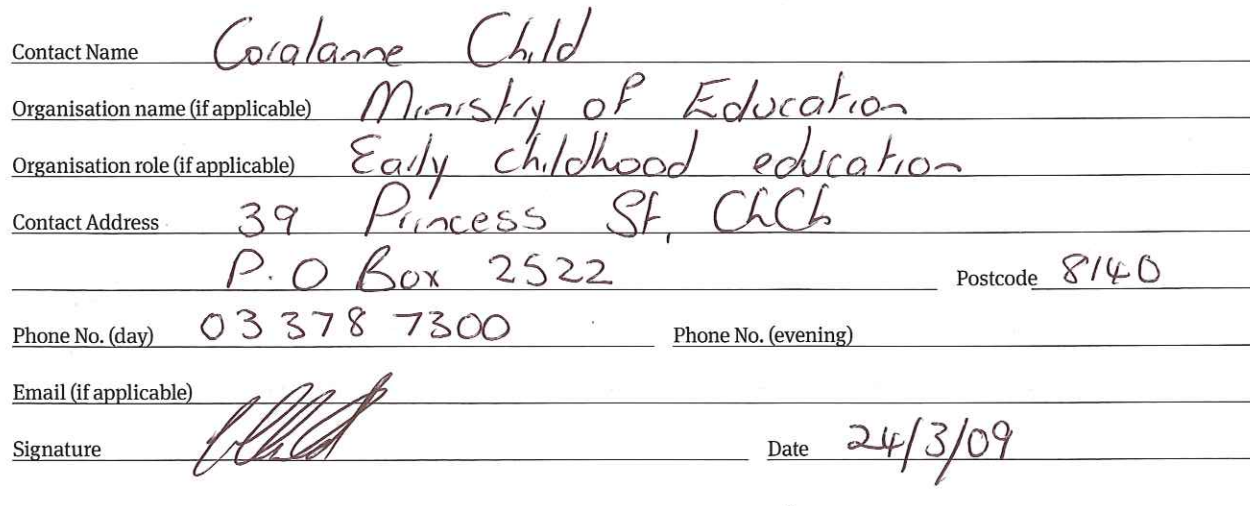 Contact Name Coralanne Child
Organisation name (if applicable) Ministry of Education
Organisation role (if applicable) Early childhood education
Contact Address 39 Princess St, ChCh
P.O Box 2522 Postcode 8140
Phone No. (day) 03 378 7300 Phone No. (evening)
Email (if applicable)
Signature Date 24/3/09